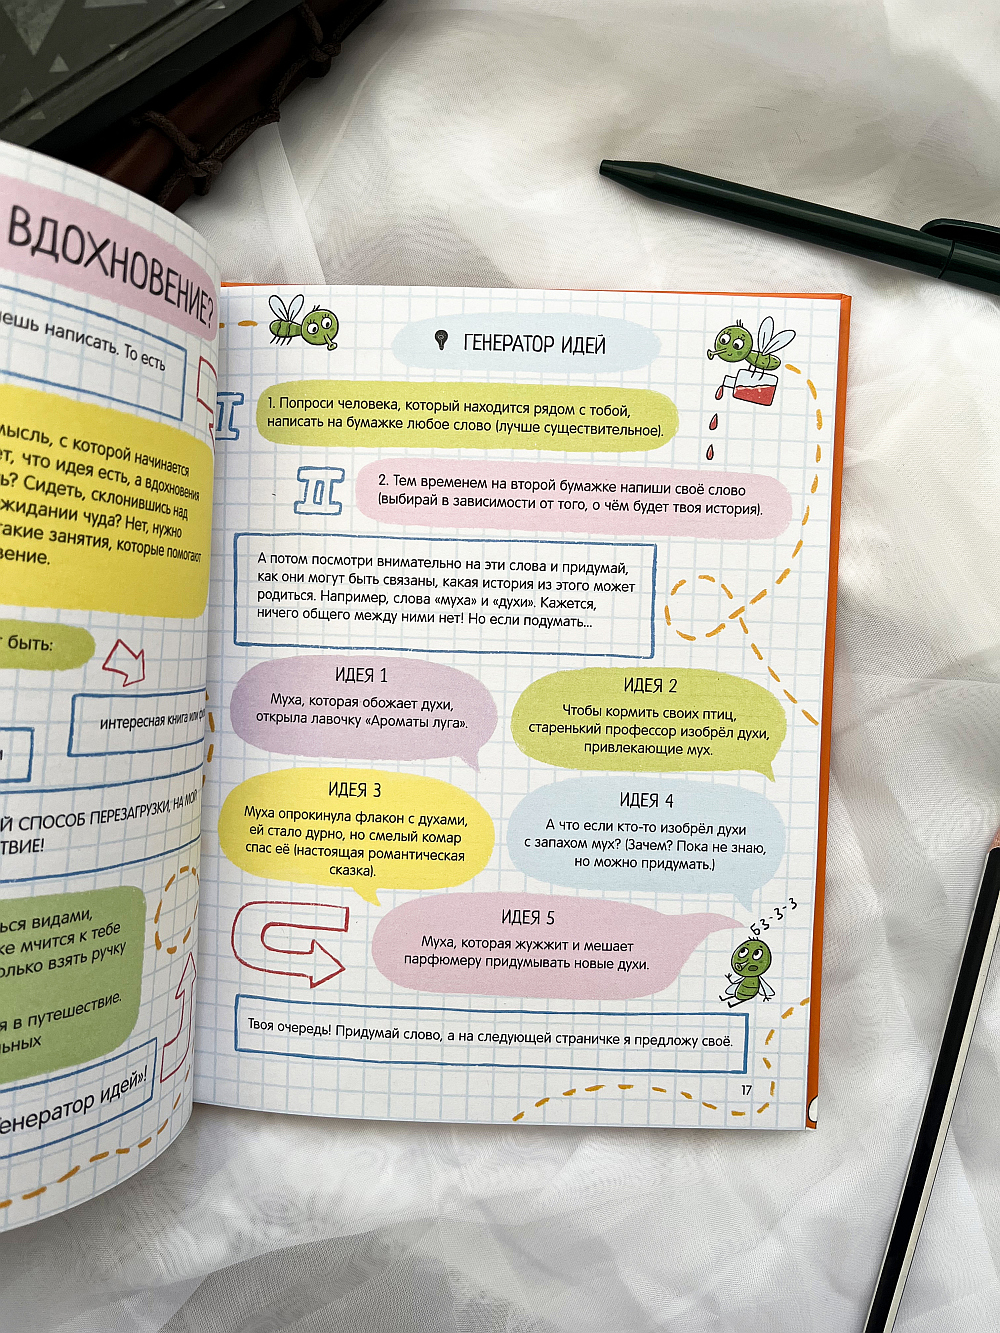 ВДОХНОВЕНИЕ?
написать. То есть
мысль, с которой начинается
что идея есть, а вдохновения
Сидеть, склонившись над
чуда? Нет, нужно
такие занятия, которые помогают
быть:
интересная книга или
СПОСОБ ПЕРЕЗАГРУЗКИ, НА МОЙ
видами,
мчится к тебе
взять ручку
в путешествие.
идей»!
ГЕНЕРАТОР ИДЕЙ
I
1. Попроси человека, который находится рядом с тобой,
написать на бумажке любое слово (лучше существительное).
II
2. Тем временем на второй бумажке напиши своё слово
(выбирай в зависимости от того, о чём будет твоя история).
А потом посмотри внимательно на эти слова и придумай,
как они могут быть связаны, какая история из этого может
родиться. Например, слова «муха» и «духи». Кажется,
ничего общего между ними нет! Но если подумать...
ИДЕЯ 1
Муха, которая обожает духи,
открыла лавочку «Ароматы луга».
ИДЕЯ 2
Чтобы кормить своих птиц,
старенький профессор изобрёл духи,
привлекающие мух.
ИДЕЯ 3
Муха опрокинула флакон с духами,
ей стало дурно, но смелый комар
спас её (настоящая романтическая
сказка).
ИДЕЯ 4
А что если кто-то изобрёл духи
с запахом мух? (Зачем? Пока не знаю,
но можно придумать.)
ИДЕЯ 5
Муха, которая жужжит и мешает
парфюмеру придумывать новые духи.
БЗ-З-З
Твоя очередь! Придумай слово, а на следующей страничке я предложу своё.
17